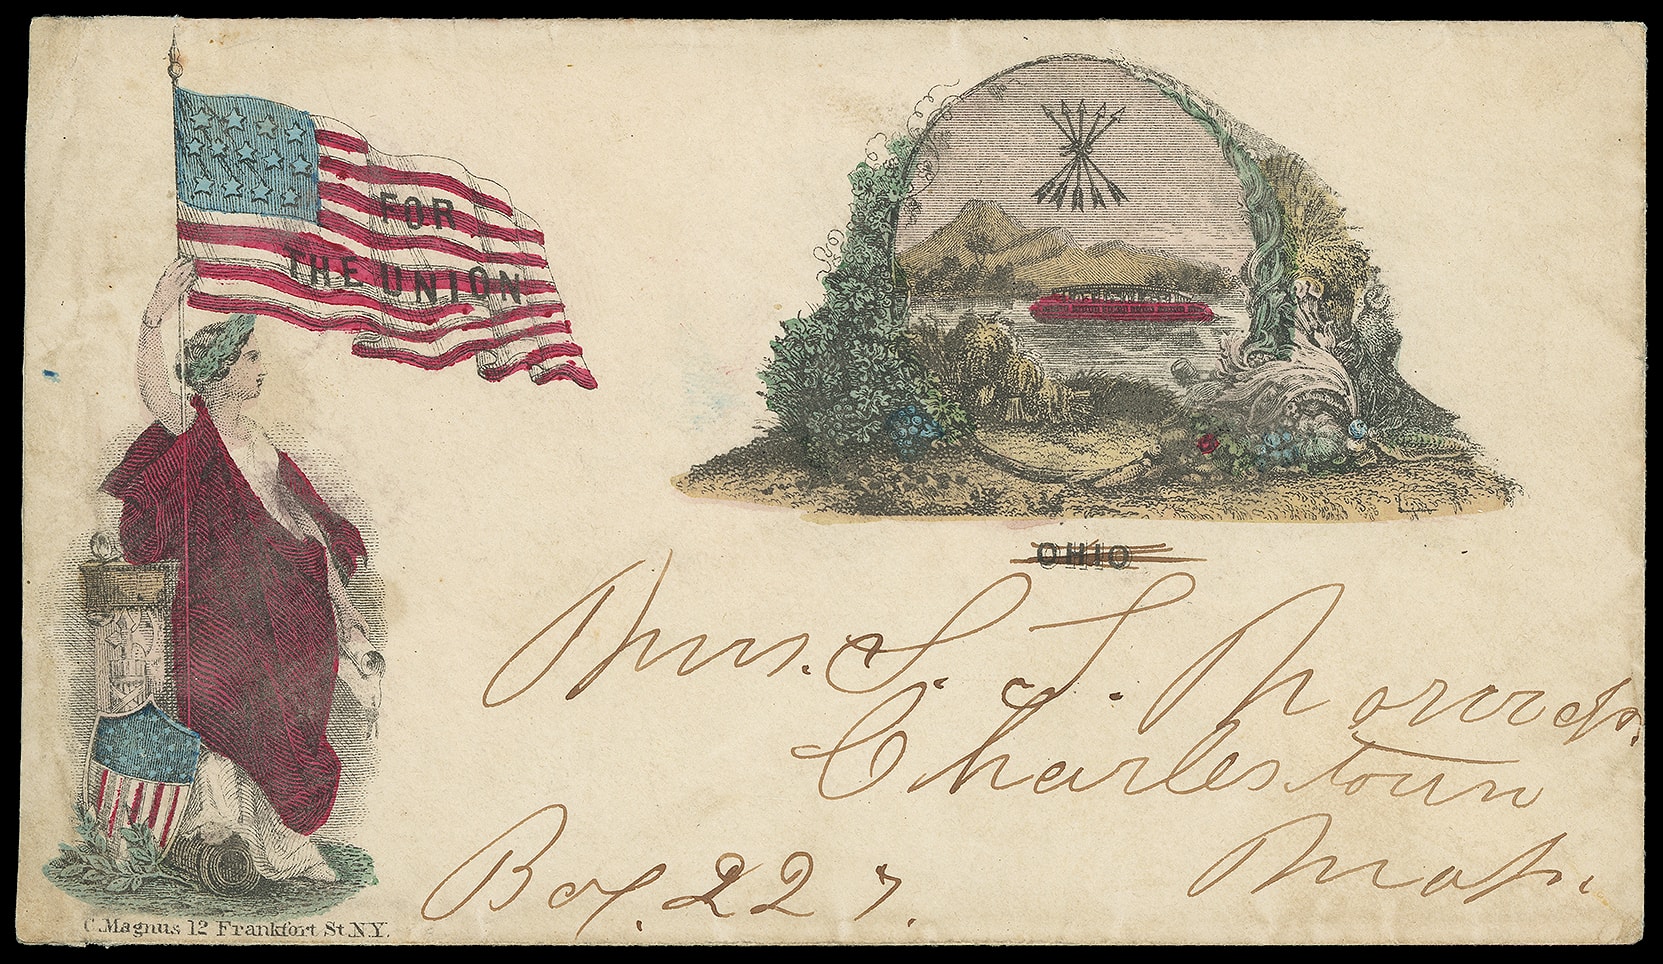 FOR
THE UNION
OHIO
Mrs. S. T. Norcross.
Charlestown
Mass.
Box. 227.
C. Magnus 12 Frankfort St. N.Y.